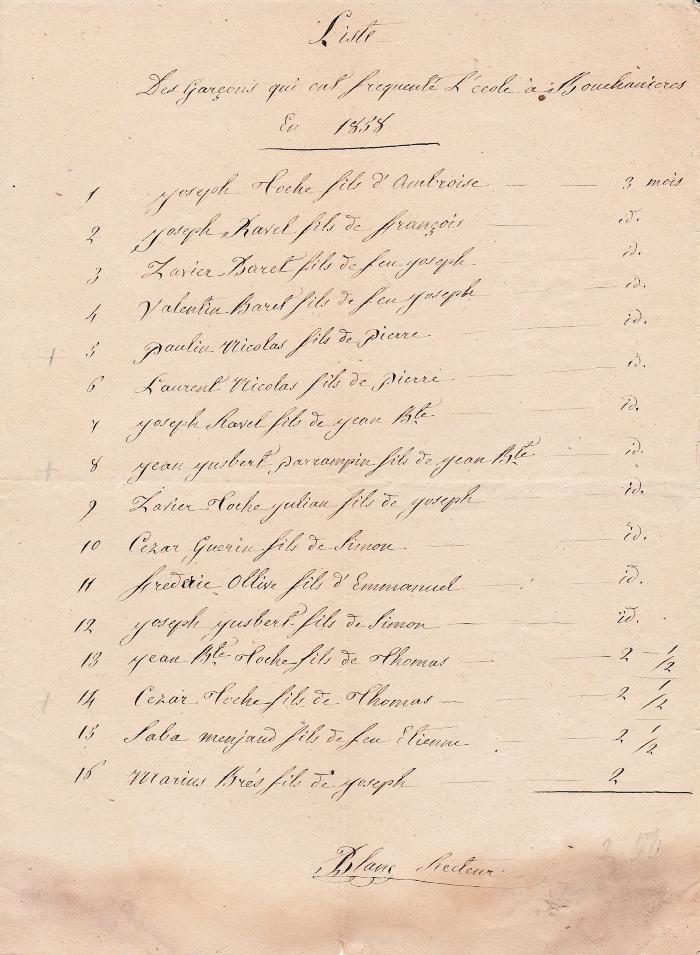 Liste
Des Garçons qui ont frequenté L'école à Bouchanieres
En 1858
1 joseph Hoche fils d'Ambroise 3 mois
2 joseph Ravel fils de françois id.
3 Zavier Baret fils de feu joseph id.
4 Valentin Baret fils de feu joseph id.
5 paulin Nicolas fils de pierre id.
6 Laurent Nicolas fils de pierre id.
7 joseph Ravel fils de jean Bte id.
8 jean jusbert parrampin fils de jean Bte id.
9 Zavier Hoche julian fils de joseph id.
10 Cezar Guerin fils de Simon id.
11 frederic Ollive fils d'Emmanuel id.
12 joseph jusbert fils de Simon id.
13 jean Bte Hoche fils de Thomas 2 1/2
14 Cezar Hoche fils de Thomas 2 1/2
15 Saba menjaud fils de feu Etienne 2 1/2
16 Marius Brés fils de joseph 2
Blanc Recteur